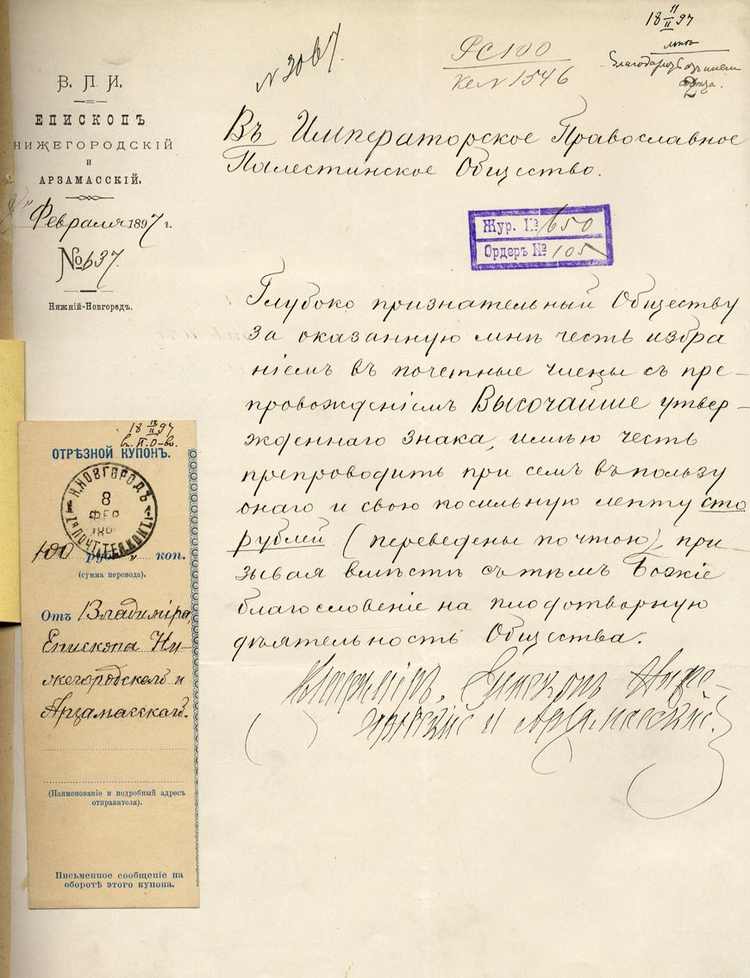 18 11/II 97
Благодарить
№ 3067.
РС 100
В. П. И.
ЕПИСКОПЪ
НИЖЕГОРОДСКІЙ
И
АРЗАМАССКІЙ.
Февраля 1897 г.
№ 637.
Нижній-Новгородъ.
Въ Императорское Православное
Палестинское Общество.
Жур. № 650
Ордеръ № 105
Глубоко признательный Обществу
за оказанную мнѣ честь избра
ніемъ въ почетные члены съ пре-
провожденіемъ Высочайше утвер-
жденнаго знака, имѣю честь
препроводить при семъ въ пользу
онаго и свою посильную лепту сто
рублей (переведены почтою), при-
зывая вмѣстѣ съ тѣмъ Божіе
благословеніе на плодотворную
дѣятельность Общества.
Владиміръ, Епископъ Ниже-
городскій и Арзамасскій.
18 97
ОТРѢЗНОЙ КУПОНЪ.
Н. НОВГОРОДЪ
8
ФЕВ
100 руб. „ коп.
(сумма перевода).
Отъ Владиміра,
Епископа Ни-
жегородскаго и
Арзамасскаго.
(Наименованіе и подробный адресъ
отправителя).
Письменное сообщеніе на
оборотѣ этого купона.